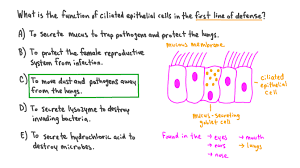 What is the function of ciliated epithelial cells in the first line of defense?
A) To secrete mucus to trap pathogens and protect the lungs.
B) To protect the female reproductive
system from infection.
C) To move dust and pathogens away
from the lungs.
D) To secrete lysozyme to destroy
invading bacteria.
E) To secrete hydrochloric acid to
destroy microbes.
mucous membrane
ciliated
epithelial
cell
mucus-secreting
goblet cell
Found in the → eyes → mouth
→ ears → lungs
→ nose